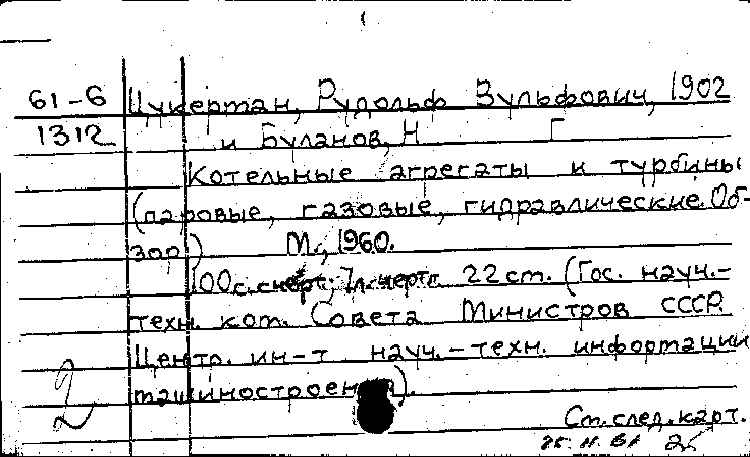 61-6 Цукерман, Рудольф Вульфович, 1902
1312 и Буланов, Н Г
Котельные агрегаты и турбины
(паровые, газовые, гидравлические. Об-
зор) М., 1960.
100 с. с черт.; 1 л. черт. 22 см. (Гос. науч.-
техн. ком. Совета Министров СССР.
Центр. ин-т науч.-техн. информации
машиностроения).
2
См. след. карт.
25